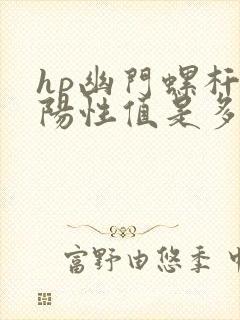 hp幽門螺杆
陽性值是多
富野由悠季